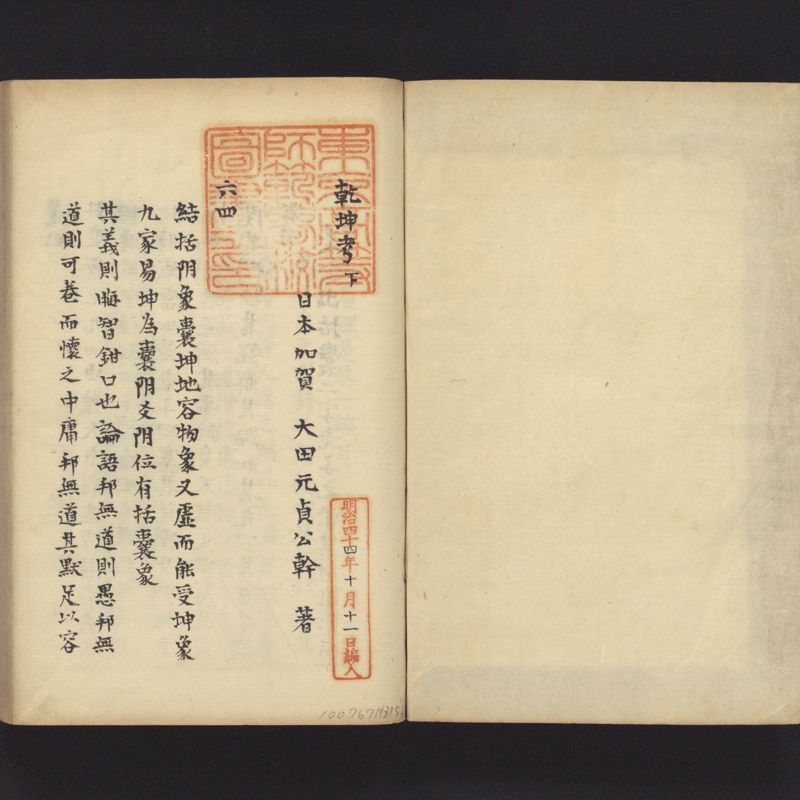 乾坤考 下
日本加賀 大田元貞公幹 著
六四
結括阴象囊坤地容物象又虛而能受坤象
九家易坤為囊阴爻阴位有括囊象
其義則晦智鉗口也論語邦無道則愚邦無
道則可卷而懷之中庸邦無道其默足以容
明治四十四年十月十一日編入